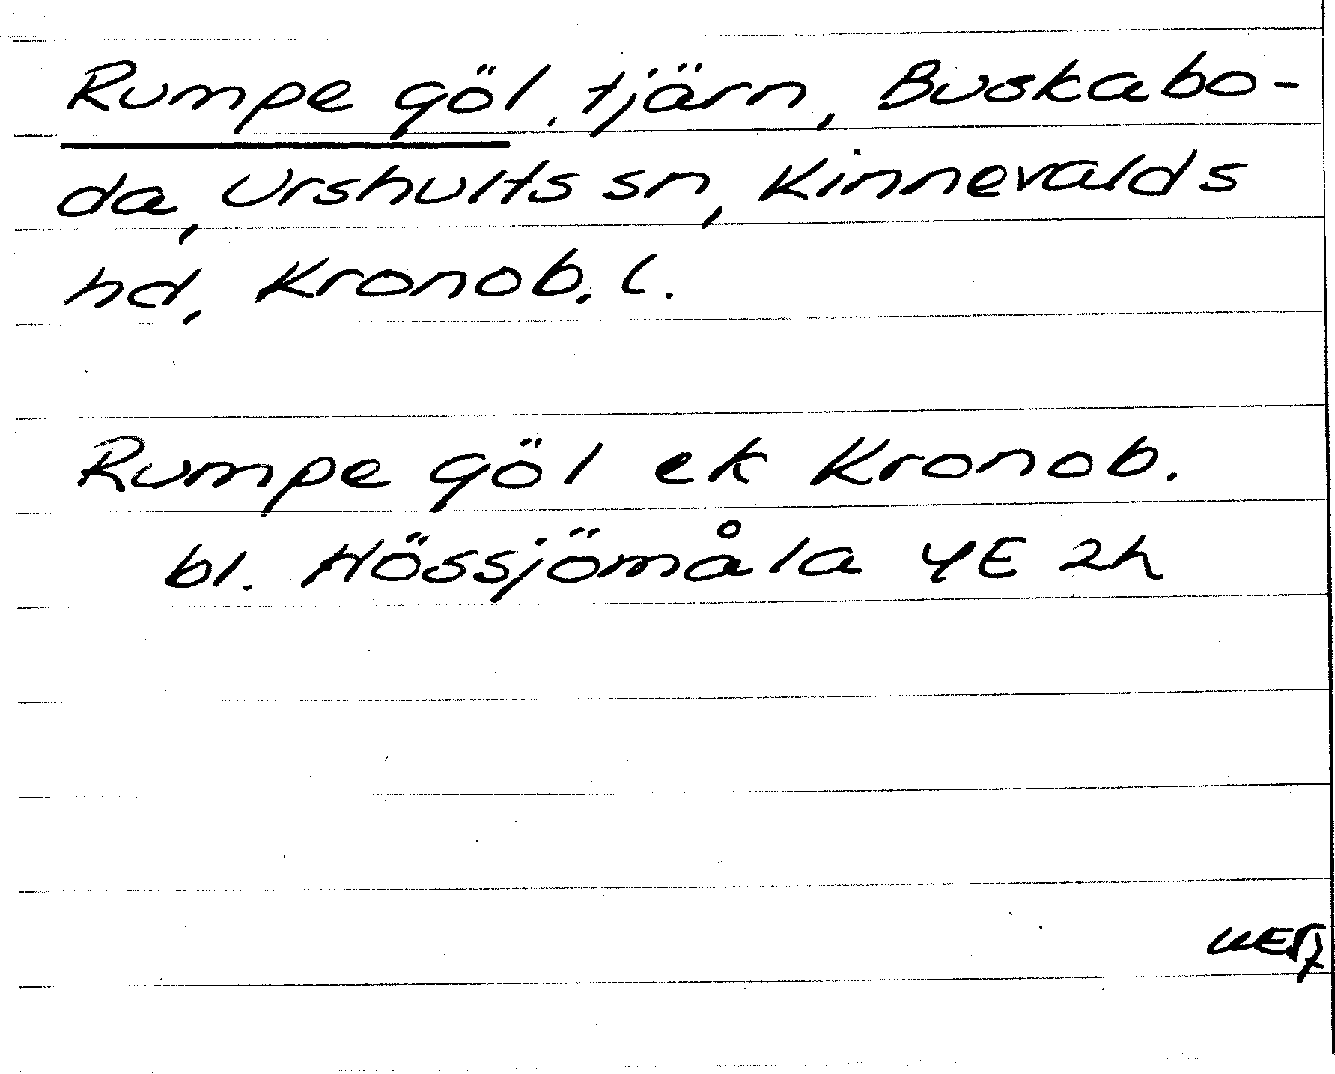 Rumpe göl, tjärn, Buskabo-
da, Urshults sn, Kinnevalds
hd, Kronob. l.
Rumpe göl ek Kronob.
bl. Hössjömåla 4E 2h